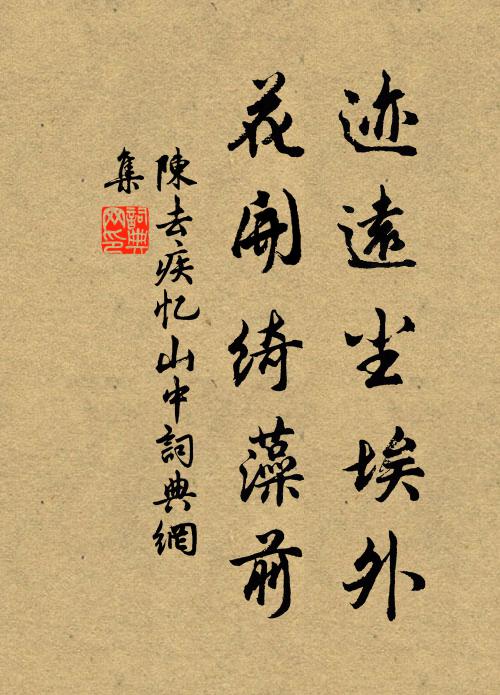 迹遠尘埃外
花開绮藻前
陳去疾忆山中詞典網
集
詞典网印